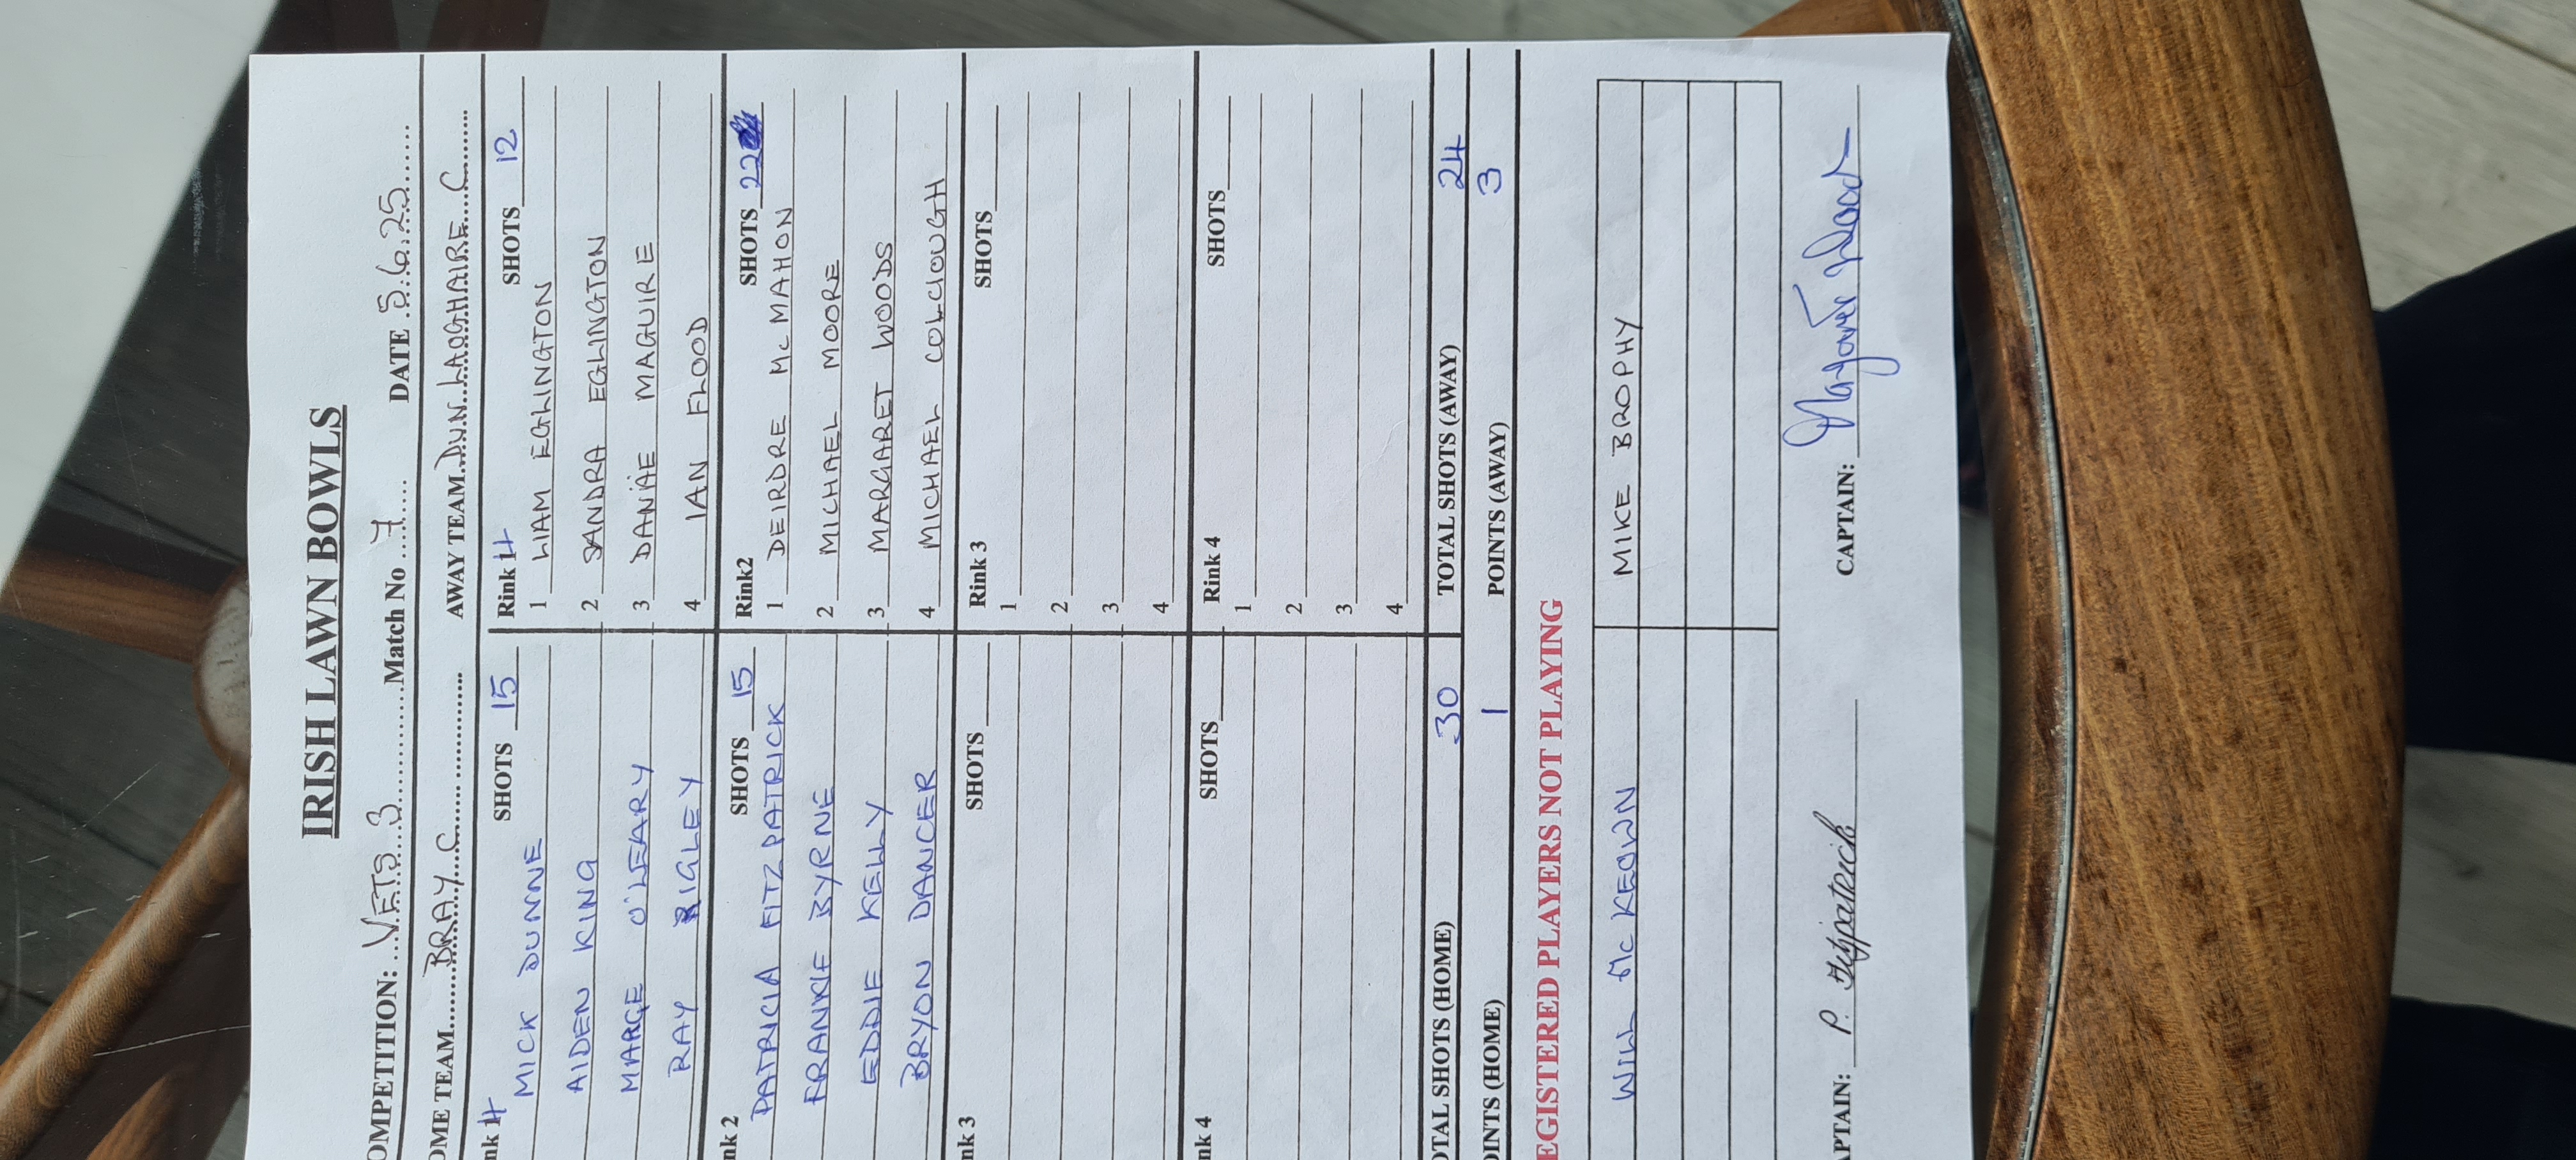 IRISH LAWN BOWLS
OMPETITION: VETS 3 Match No 7 DATE 5.6.25
OME TEAM BRAY C AWAY TEAM DUN LAOGHAIRE C
nk 4 SHOTS 15 Rink 4 SHOTS 12
MICK DUNNE 1 LIAM EGLINGTON
AIDEN KING 2 SANDRA EGLINGTON
MARGE O'LEARY 3 DANÄE MAGUIRE
RAY RIGLEY 4 IAN FLOOD
nk 2 SHOTS 15 Rink2 SHOTS 22
PATRICIA FITZPATRICK 1 DEIRDRE McMAHON
FRANKIE BYRNE 2 MICHAEL MOORE
EDDIE KELLY 3 MARGARET WOODS
BRYON DANCER 4 MICHAEL COLCLOUGH
nk 3 SHOTS Rink 3 SHOTS
1
2
3
4
nk 4 SHOTS Rink 4 SHOTS
1
2
3
4
OTAL SHOTS (HOME) 30 TOTAL SHOTS (AWAY) 24
OINTS (HOME) 1 POINTS (AWAY) 3
EGISTERED PLAYERS NOT PLAYING
WILL McKEOWN MIKE BROPHY
APTAIN: P. Fitzpatrick CAPTAIN: Margaret